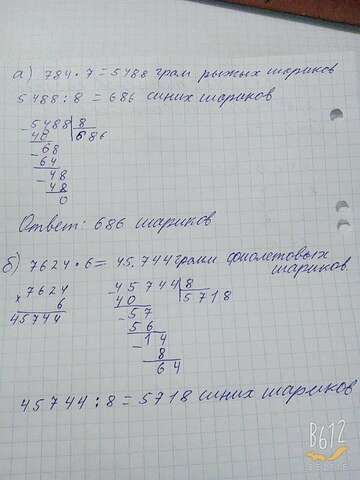 а) 784 · 7 = 5488 грам рыжых шариков
5488 : 8 = 686 синих шариков
- 5488 | 8
48 | 686
- 68
64
- 48
48
0
Ответ: 686 шариков
б) 7624 · 6 = 45.744 грамм фиолетовых шариков.
× 7624
6
45744
- 45744 | 8
40 | 5718
- 57
56
- 14
8
64
45744 : 8 = 5718 синих шариков
B612
SELFIE